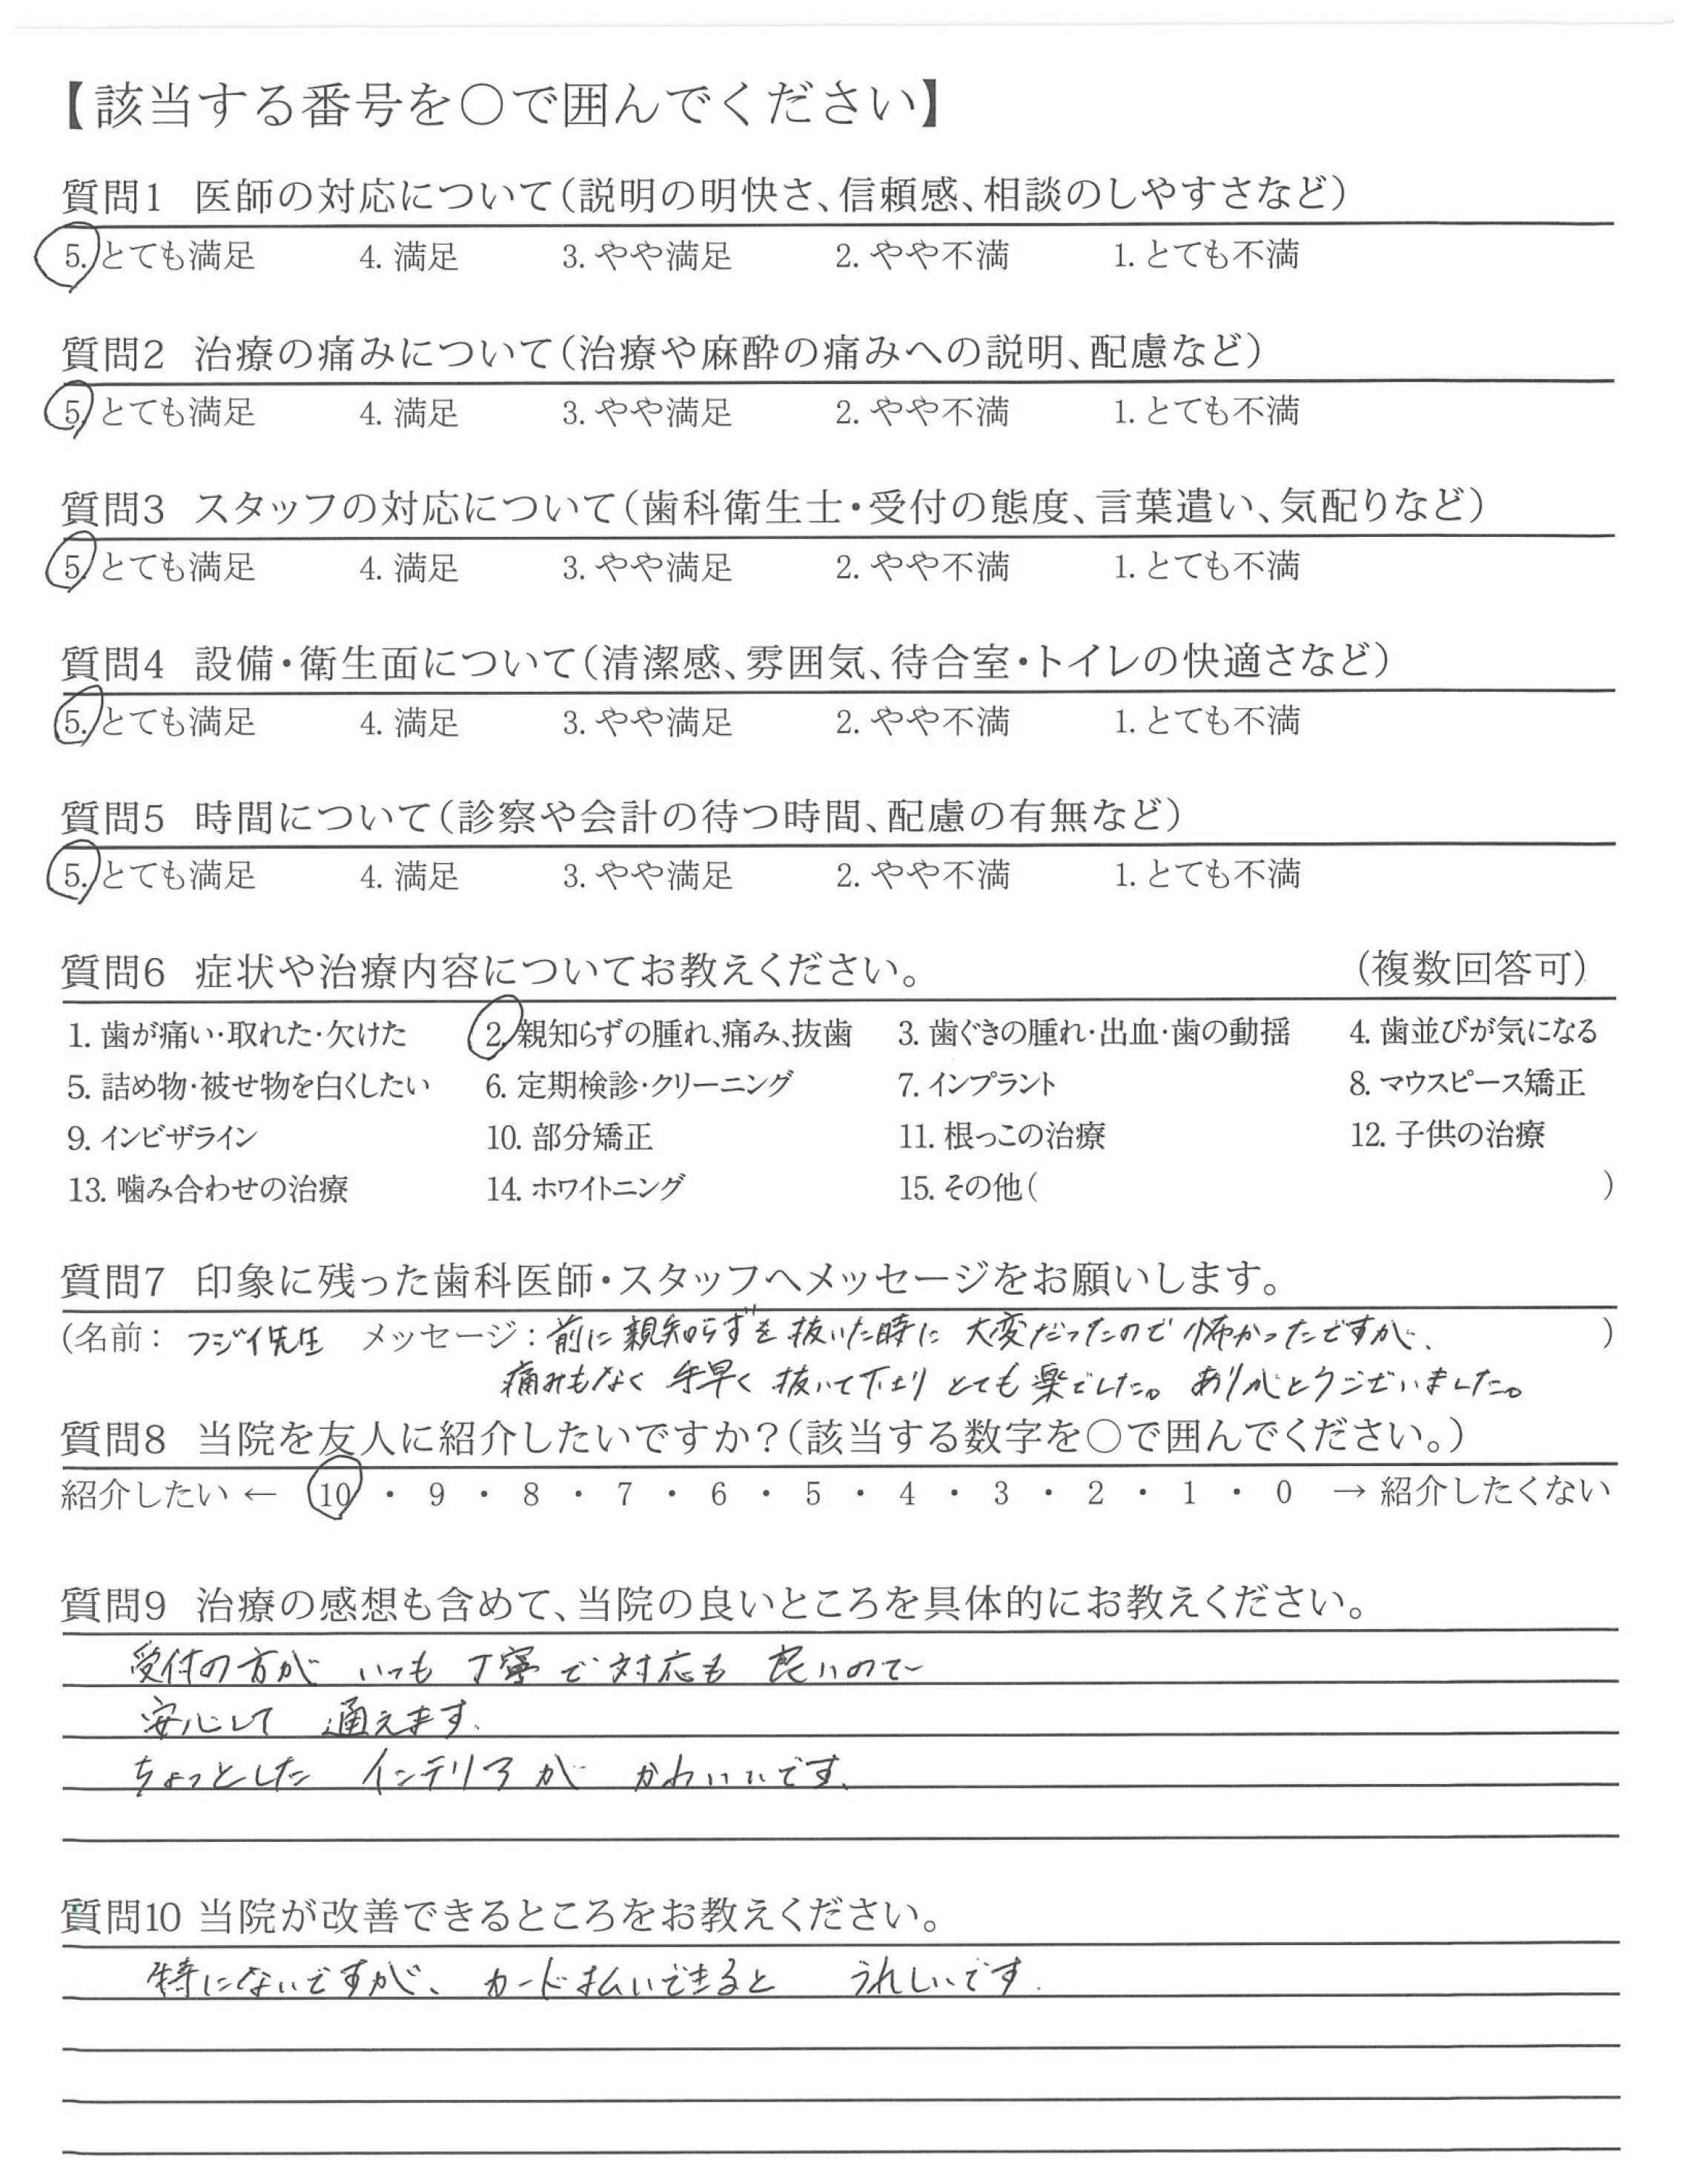 【該当する番号を○で囲んでください】
質問1 医師の対応について(説明の明快さ、信頼感、相談のしやすさなど)
5. とても満足 4. 満足 3. やや満足 2. やや不満 1. とても不満
質問2 治療の痛みについて(治療や麻酔の痛みへの説明、配慮など)
5. とても満足 4. 満足 3. やや満足 2. やや不満 1. とても不満
質問3 スタッフの対応について(歯科衛生士・受付の態度、言葉遣い、気配りなど)
5. とても満足 4. 満足 3. やや満足 2. やや不満 1. とても不満
質問4 設備・衛生面について(清潔感、雰囲気、待合室・トイレの快適さなど)
5. とても満足 4. 満足 3. やや満足 2. やや不満 1. とても不満
質問5 時間について(診察や会計の待つ時間、配慮の有無など)
5. とても満足 4. 満足 3. やや満足 2. やや不満 1. とても不満
質問6 症状や治療内容についてお教えください。 (複数回答可)
1. 歯が痛い・取れた・欠けた 2. 親知らずの腫れ、痛み、抜歯 3. 歯ぐきの腫れ・出血・歯の動揺 4. 歯並びが気になる
5. 詰め物・被せ物を白くしたい 6. 定期検診・クリーニング 7. インプラント 8. マウスピース矯正
9. インビザライン 10. 部分矯正 11. 根っこの治療 12. 子供の治療
13. 噛み合わせの治療 14. ホワイトニング 15. その他( )
質問7 印象に残った歯科医師・スタッフへメッセージをお願いします。
(名前: フジイ先生 メッセージ: 前に親知らずを抜いた時に大変だったので怖かったですが、 )
痛みもなく手早く抜いて下さりとても楽でした。ありがとうございました。
質問8 当院を友人に紹介したいですか?(該当する数字を○で囲んでください。)
紹介したい ← 10 ・ 9 ・ 8 ・ 7 ・ 6 ・ 5 ・ 4 ・ 3 ・ 2 ・ 1 ・ 0 → 紹介したくない
質問9 治療の感想も含めて、当院の良いところを具体的にお教えください。
受付の方がいつも丁寧で対応も良いので
安心して通えます。
ちょっとしたインテリアがかわいいです。
質問10 当院が改善できるところをお教えください。
特にないですが、カード払いできるとうれしいです.